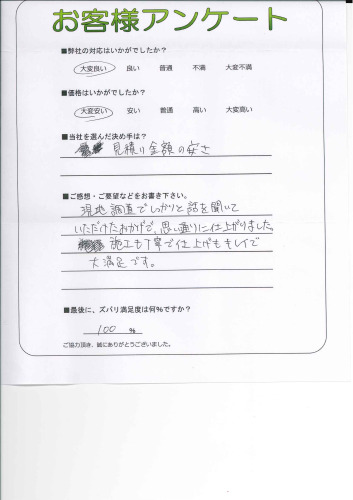 お客様アンケート
■弊社の対応はいかがでしたか？
大変良い 良い 普通 不満 大変不満
■価格はいかがでしたか？
大変安い 安い 普通 高い 大変高い
■当社を選んだ決め手は？
見積り金額の安さ
■ご感想・ご要望などをお書き下さい。
現地調査でしっかりと話を聞いて
いただけたおかげで、思い通りに仕上がりました。
施工も丁寧で仕上げもキレイで
大満足です。
■最後に、ズバリ満足度は何％ですか？
100 %
ご協力頂き、誠にありがとうございました。